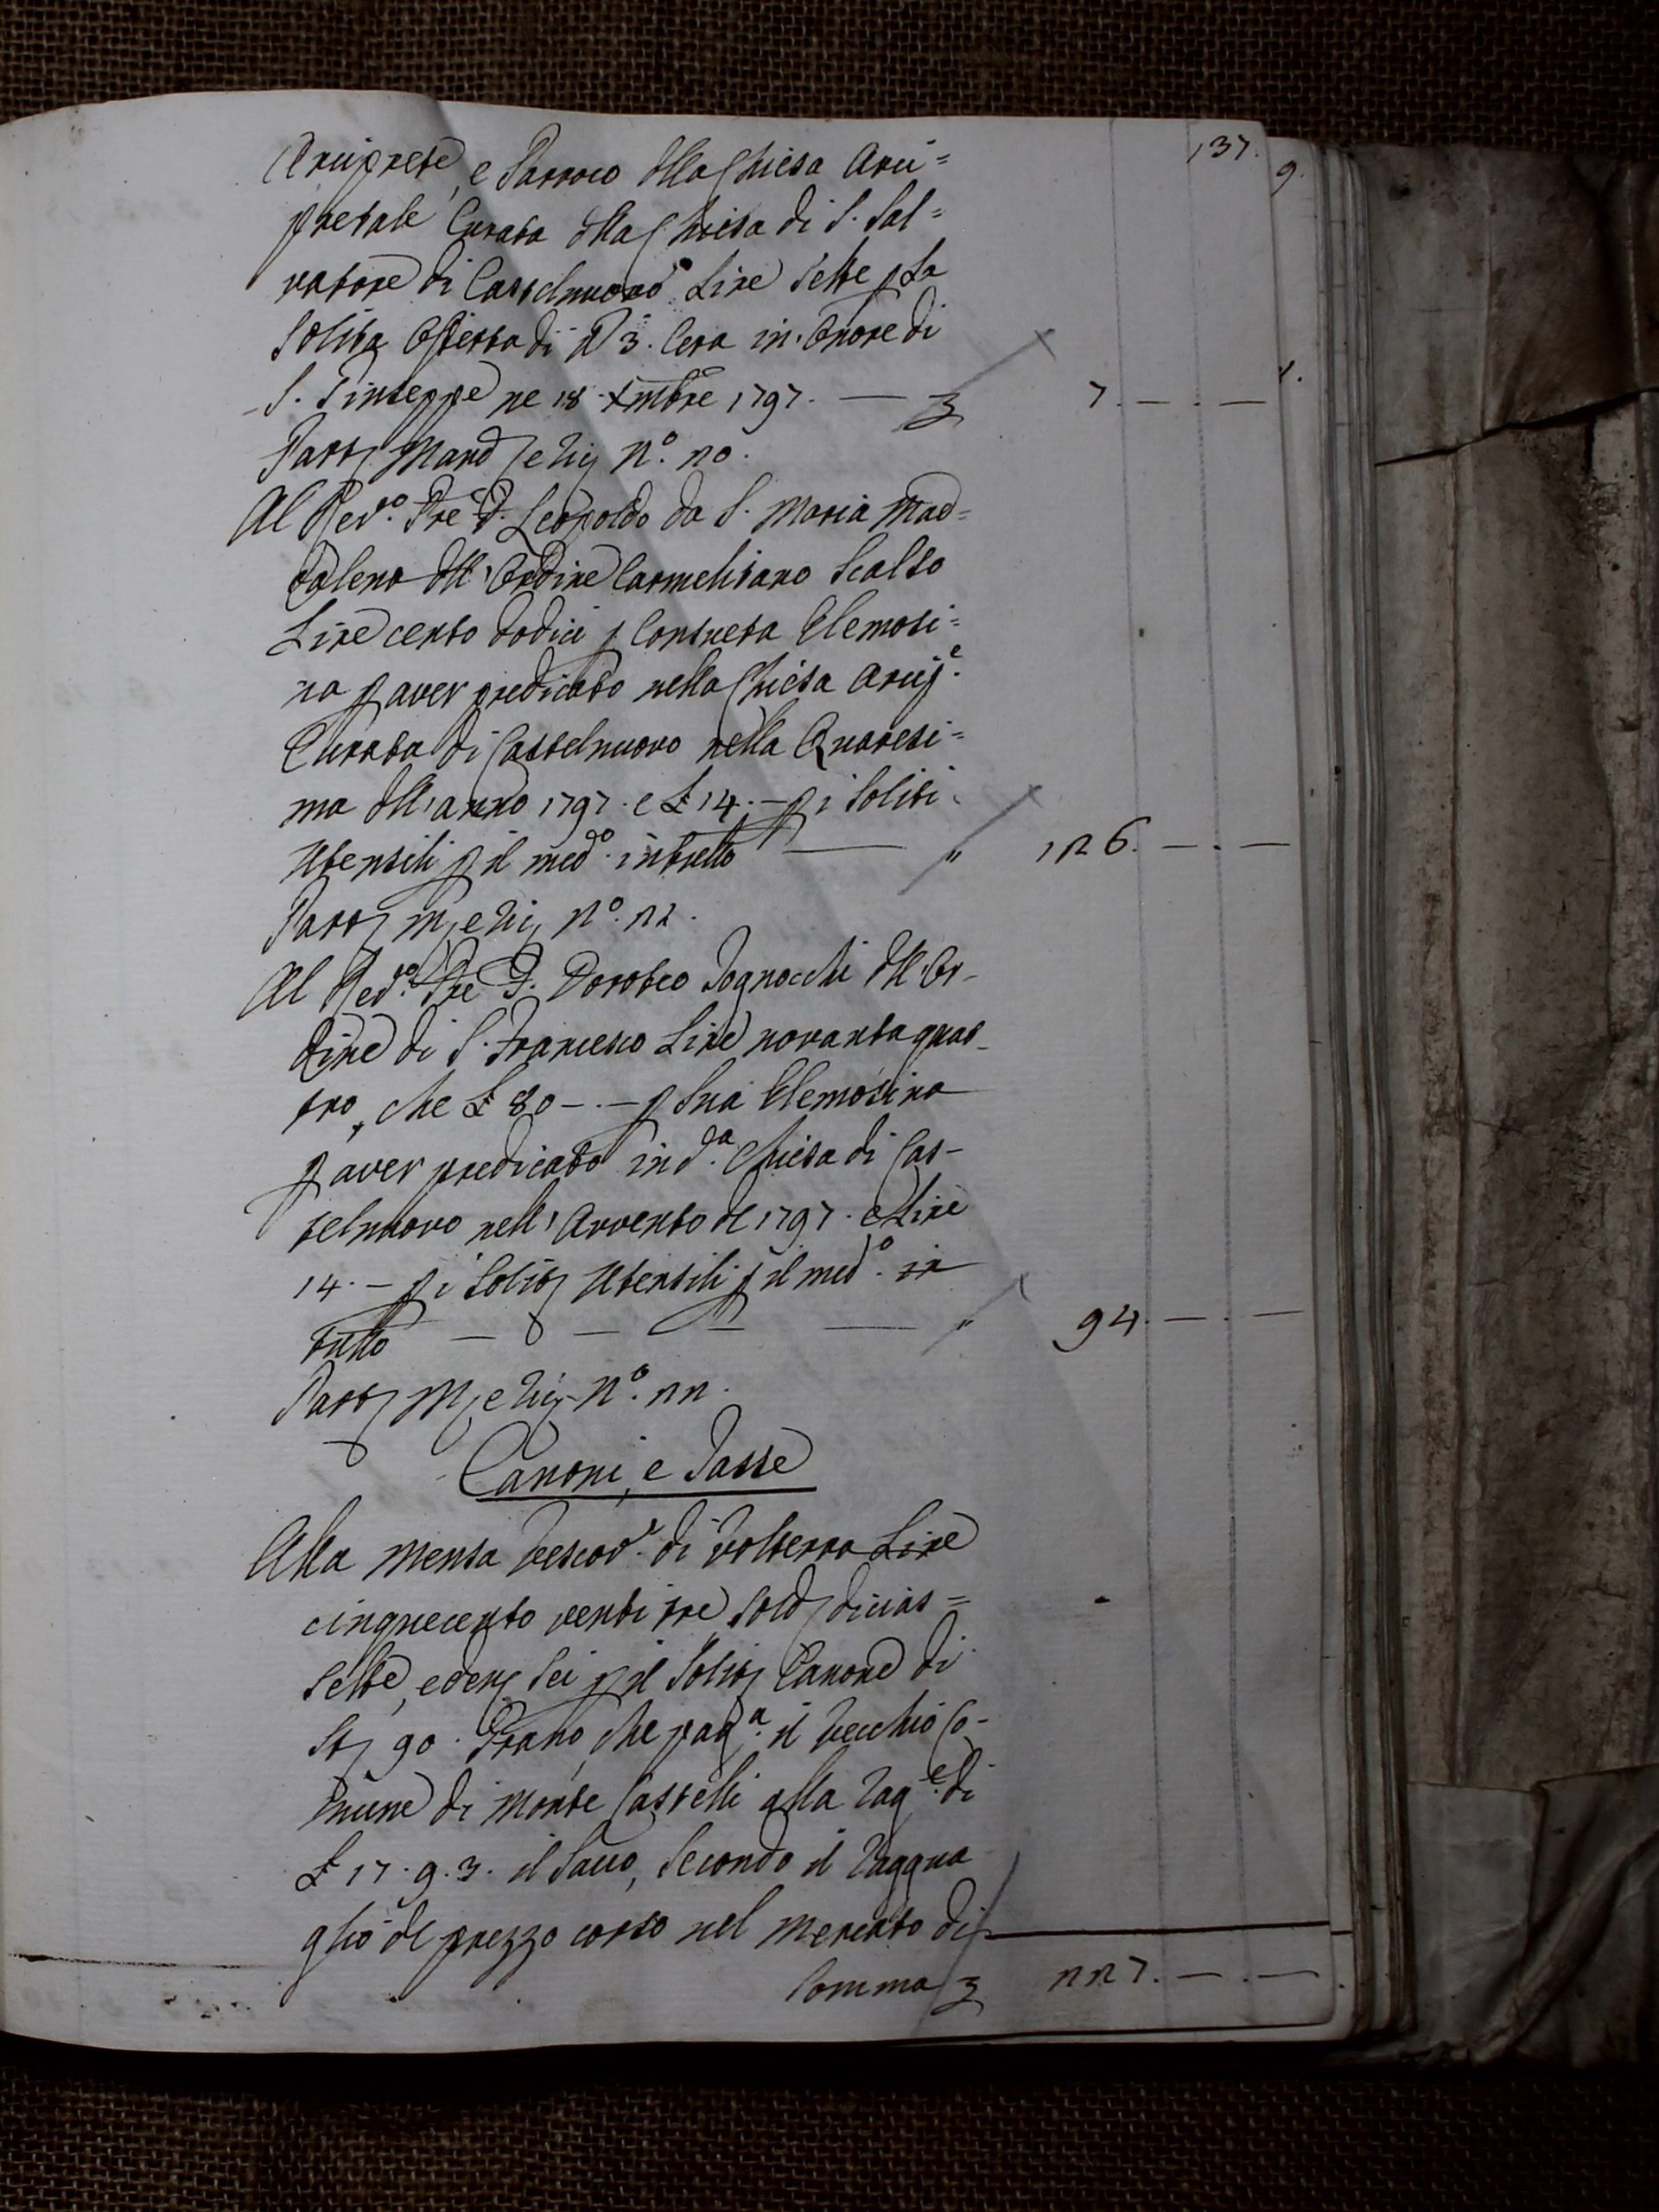 137.
Arciprete, e Parroco della Chiesa Arci=
pretale Curata della Chiesa di S. Sal=
vatore di Castelnuovo Lire Sette p la
Solita Offerta di lb 3. Cera in Onore di
S. Giuseppe ne 18. Xmbre 1797. — 7. — . —
Part. Mand. e Ric. N.º 20.
Al Red.º Pre D. Leopoldo da S. Maria Mad=
dalena dell'Ordine Carmelitano Scalzo
Lire cento dodici p Consueta Elemosi=
na p aver predicato nella Chiesa Arcip.e
Curata di Castelnuovo nella Quaresi=
ma dell'anno 1797. e £ 14. — p i Soliti
Utensili p il med.º in tutto — " 126. — . —
Part. M. e Ric. N.º 21.
Al Red.º Pre D. Doroteo Tognocchi dell'Or-
dine di S. Francesco Lire novantaquat-
tro, che £ 80 — . — p Sua Elemosina
p aver predicato in d.a Chiesa di Cas-
telnuovo nell'Avvento del 1797. e Lire
14. — p i Solit. Utensili p il med.º in
tutto — — — — " 94. — . —
Part. M. e Ric. N.º 22.
Canoni, e Tasse
Alla Mensa Vescov.e di Volterra Lire
cinquecento venti tre Sold. dicias=
sette, e den. Sei p il Solit. Canone di
St. 90. Grano, che pag.a il Vecchio Co-
mune di Monte Castelli alla Rag.e di
£ 17. 9. 3. il Sacco, Secondo il Raggua
glio del prezzo corso nel Mercato di
Somma 227. — . —